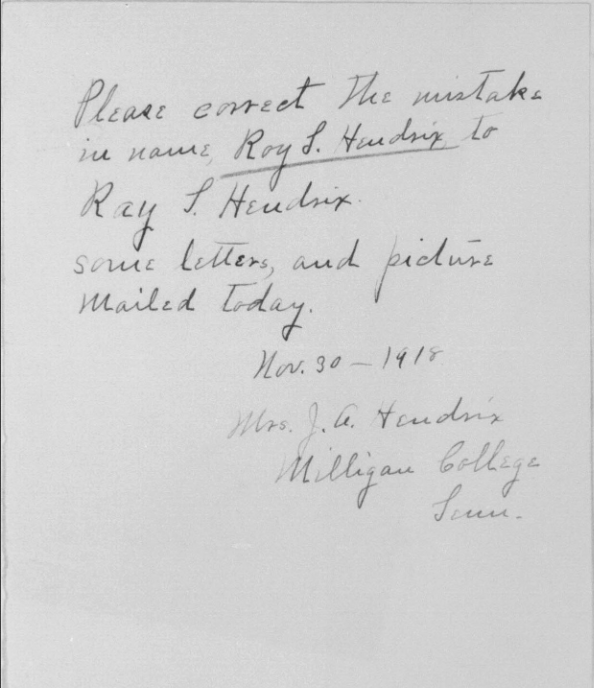 Please correct the mistake
in name, Roy S. Hendrix, to
Ray S. Hendrix.
some letters, and picture
mailed today.
Nov. 30 – 1918
Mrs. J. A. Hendrix
Milligan College
Tenn.